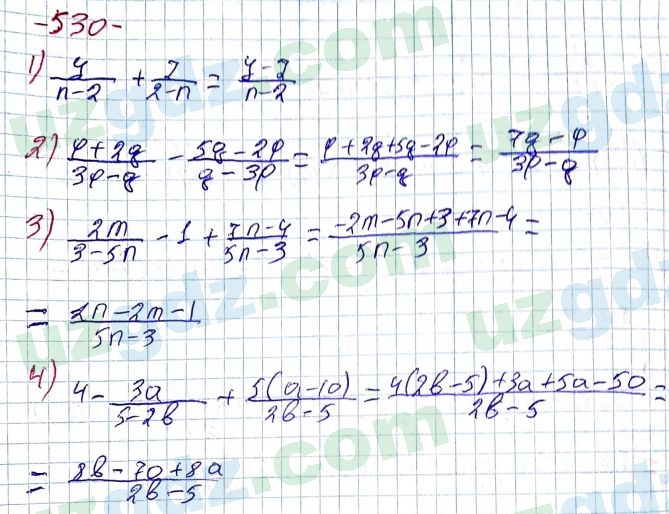 -530-
1) y/(n-2) + 7/(2-n) = (y-7)/(n-2)
2) (p+2q)/(3p-q) - (5q-2p)/(q-3p) = (p+2q+5q-2p)/(3p-q) = (7q-p)/(3p-q)
3) 2m/(3-5n) - 1 + (7n-4)/(5n-3) = (-2m-5n+3+7n-4)/(5n-3) =
= (2n-2m-1)/(5n-3)
4) 4 - 3a/(5-2b) + 5(a-10)/(2b-5) = (4(2b-5)+3a+5a-50)/(2b-5) =
= (8b-70+8a)/(2b-5)
uzgdz.com